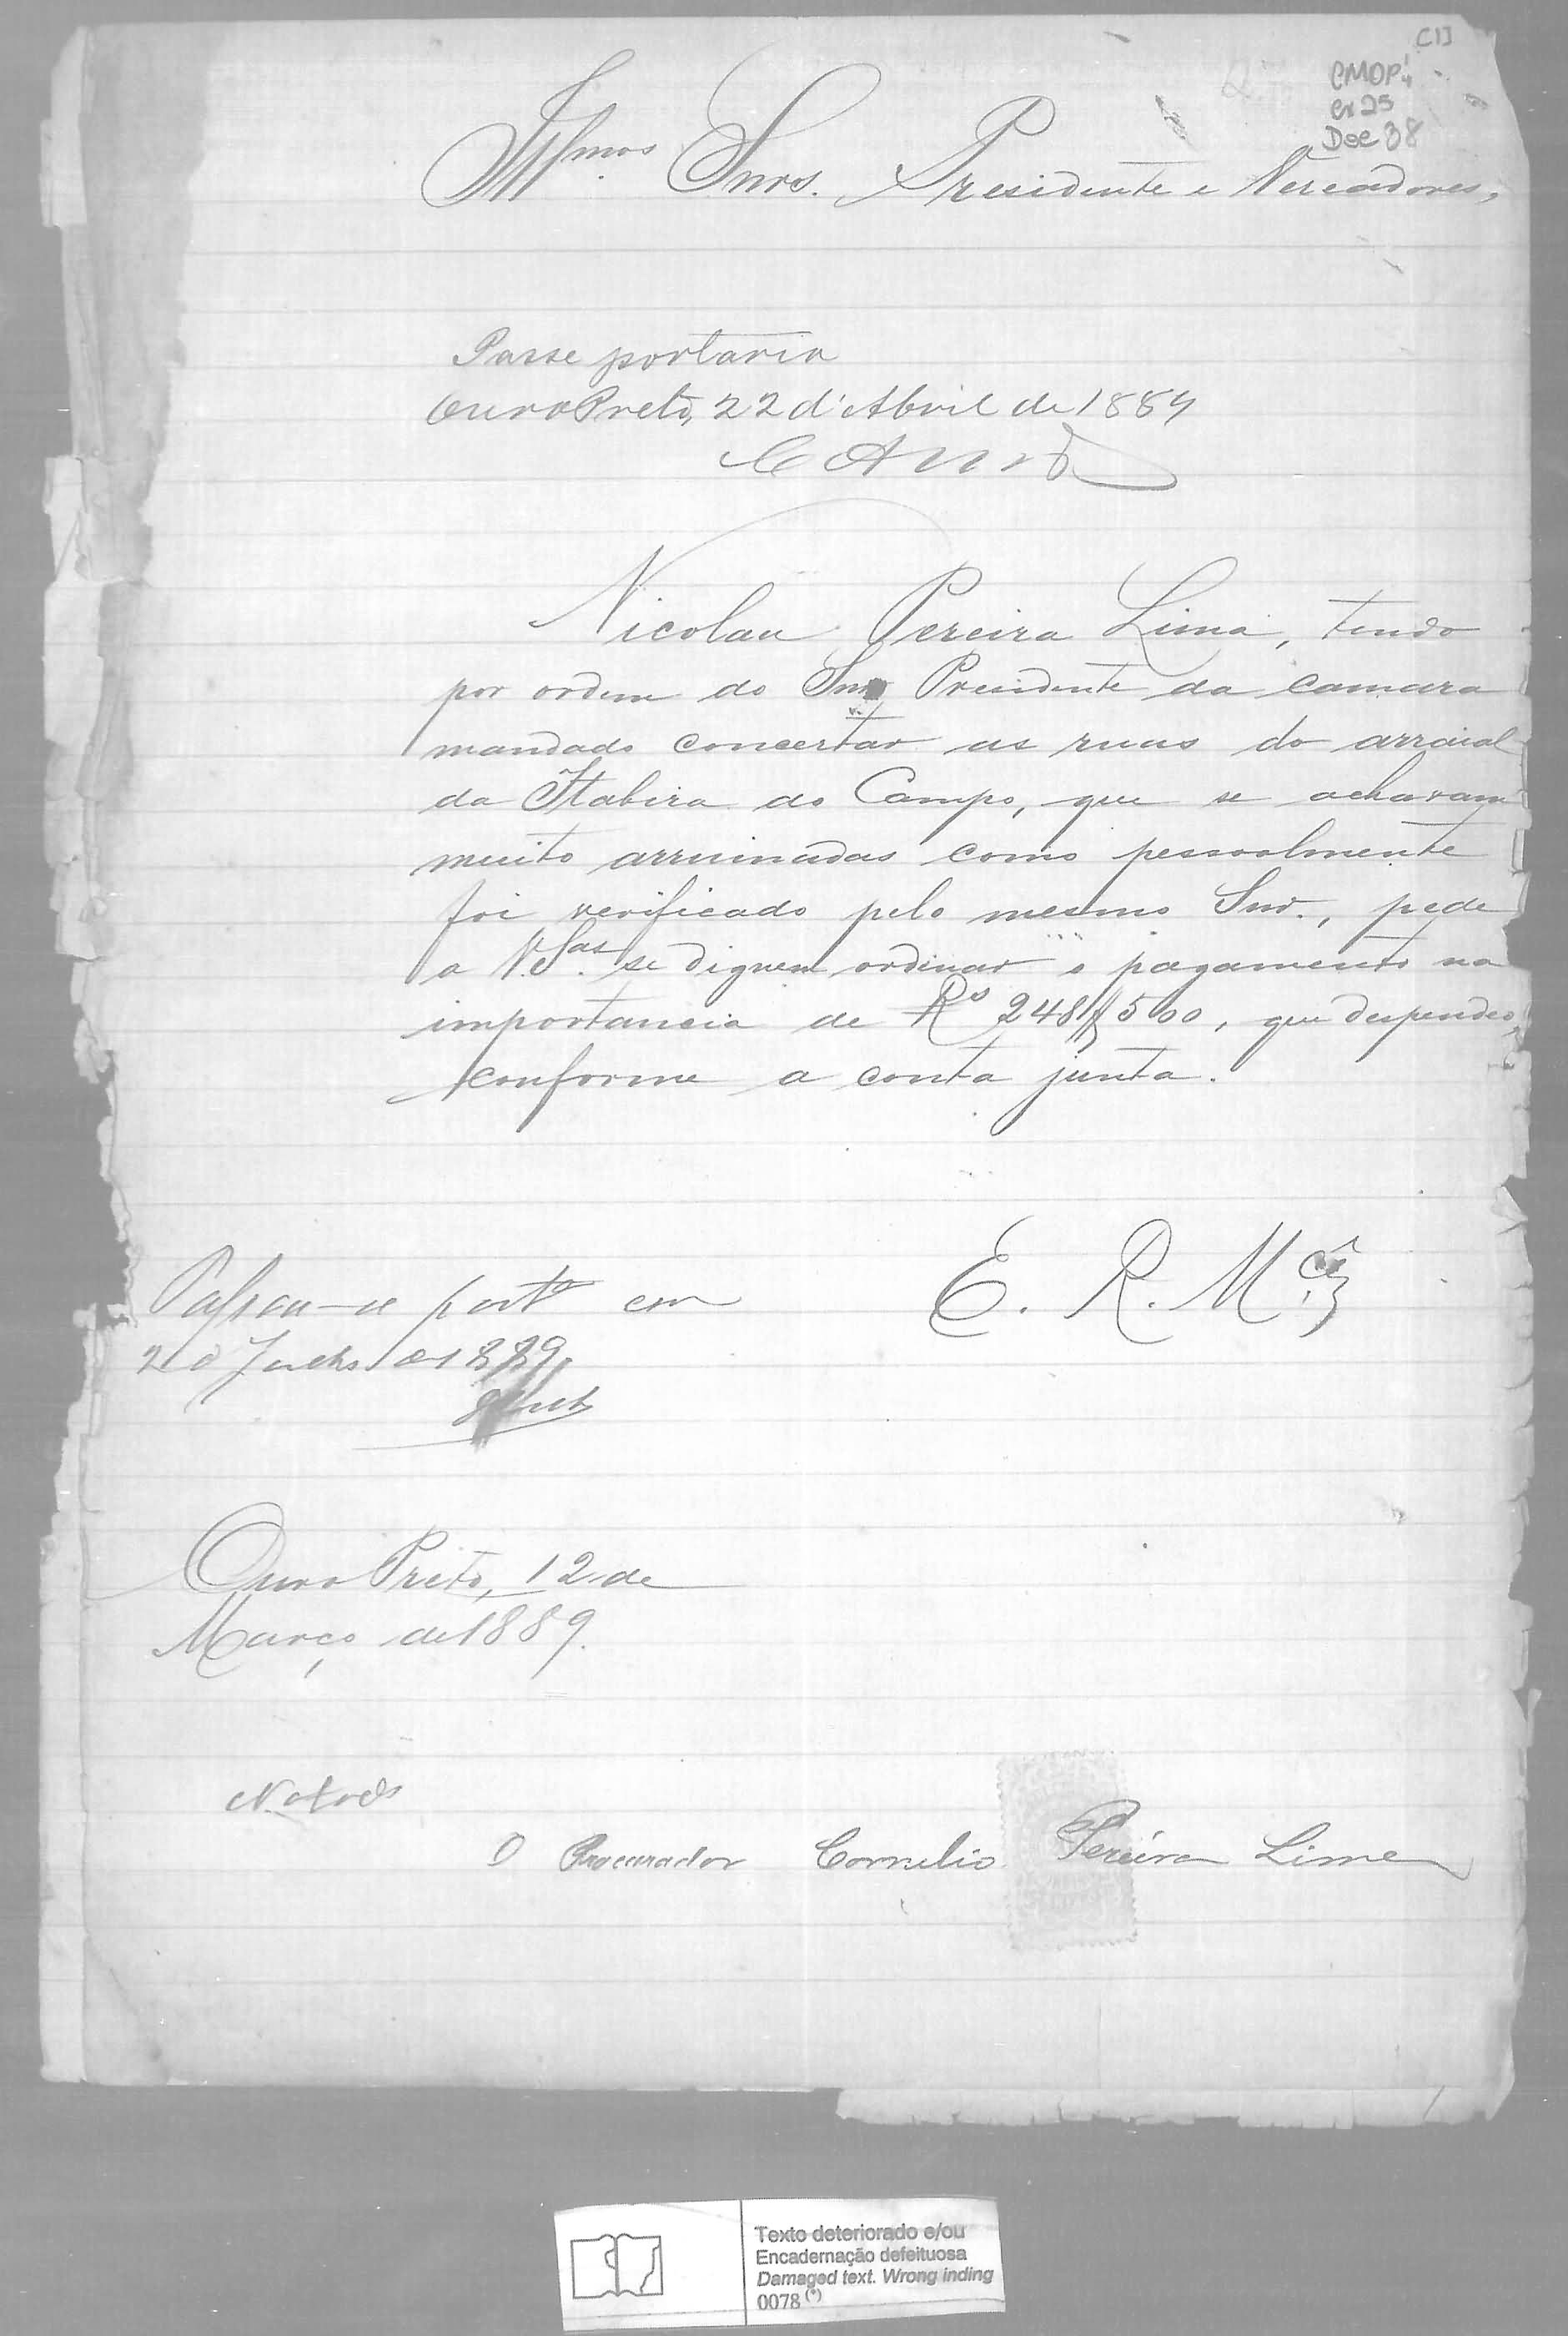 C13
CMOP
cx 25
Doc 38
Illmos. Snrs. Presidente e Vereadores,
Passe portaria
Ouro Preto, 22 d'Abril de 1889
Nicolau Pereira Lima, tendo
por ordem do Snr. Presidente da camara
mandado concertar as ruas do arraial
da Itabira do Campo, que se achavam
muito arruinadas como pessoalmente
foi verificado pelo mesmo Snr., pede
a V.Sas. se dignem ordenar o pagamento na
importancia de Rs 248$500, que despendeo,
conforme a conta junta.
E. R. Mcê
Passou-se porta em
2 d Julho de 1889
Ouro Preto, 12 de
Março de 1889.
O Procurador Cornelio Pereira Lima
Texto deteriorado e/ou
Encadernação defeituosa
Damaged text. Wrong inding
0078 (*)